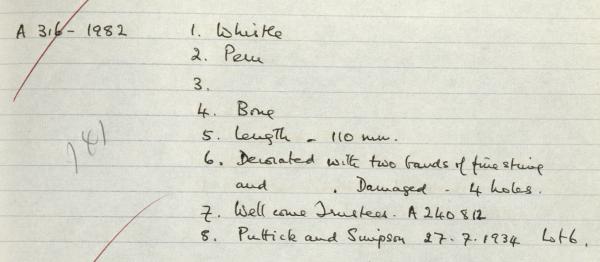 A 316 - 1982 1. Whistle
2. Peru
3.
4. Bone
5. Length - 110 mm.
6. Decorated with two bands of fine string
and . Damaged - 4 holes.
141
7. Wellcome Trustees. A 240812
8. Puttick and Simpson 27.7.1934 Lot 6.